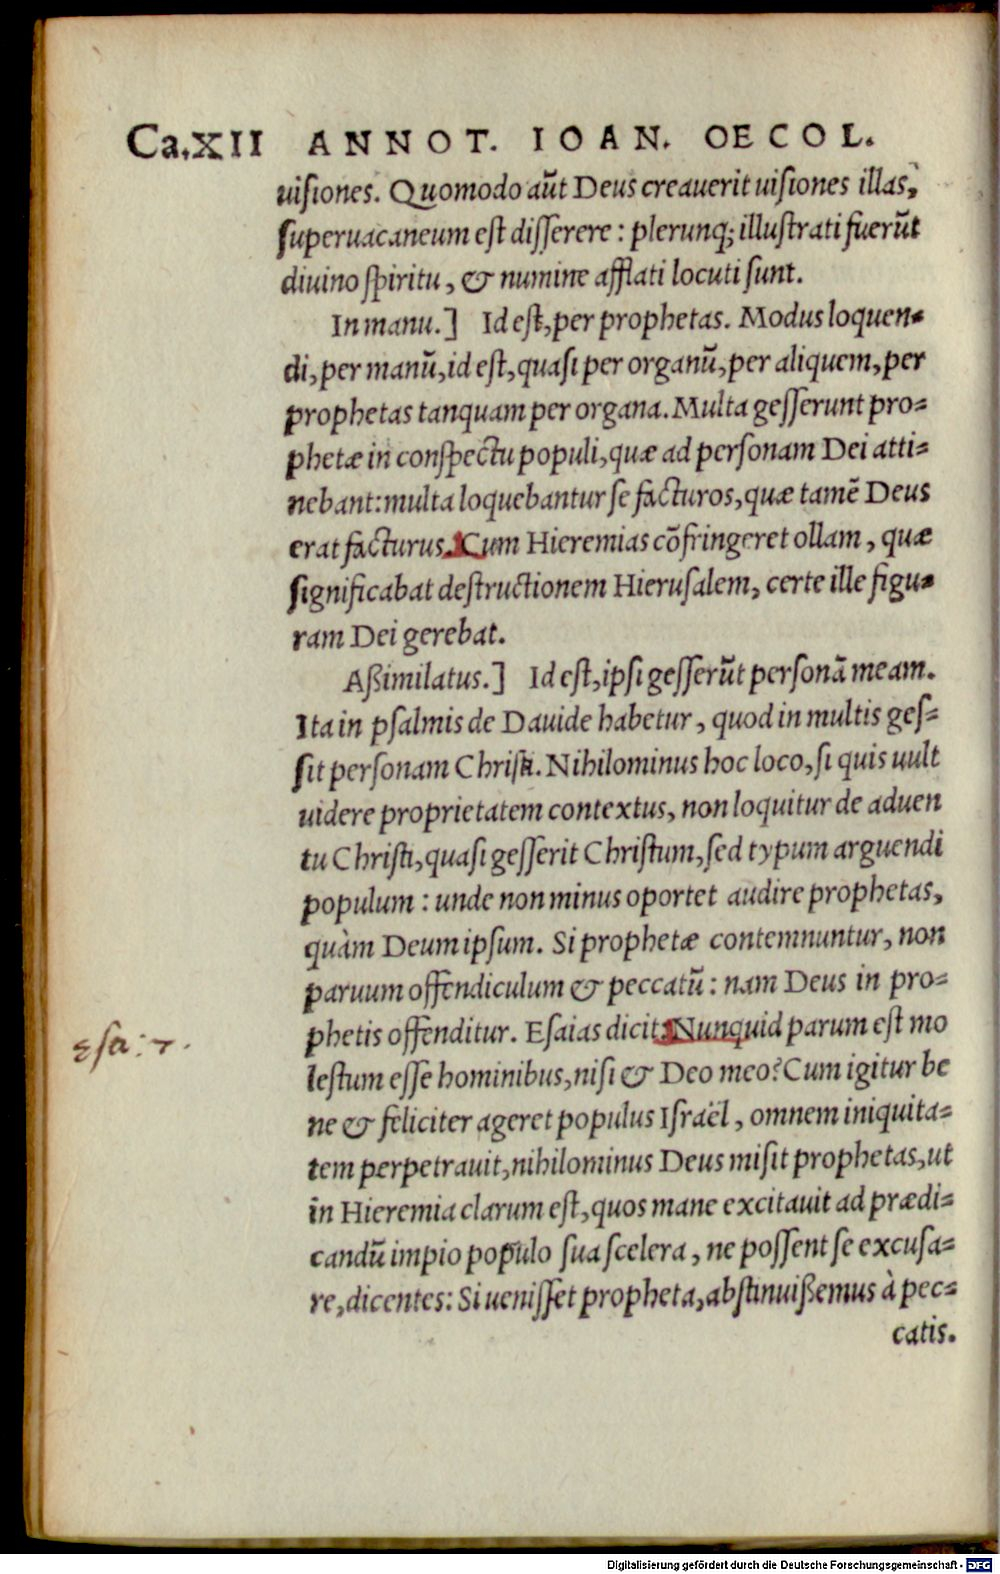 Ca.XII ANNOT. IOAN. OECOL.
uisiones. Quomodo aūt Deus creauerit uisiones illas,
superuacaneum est disserere: plerunq; illustrati fuerūt
diuino spiritu, & numine afflati locuti sunt.
In manu.] Id est, per prophetas. Modus loquen=
di, per manū, id est, quasi per organū, per aliquem, per
prophetas tanquam per organa. Multa gesserunt pro=
phetæ in conspectu populi, quæ ad personam Dei atti=
nebant: multa loquebantur se facturos, quæ tamē Deus
erat facturus. Cum Hieremias cōfringeret ollam, quæ
significabat destructionem Hierusalem, certe ille figu=
ram Dei gerebat.
Aßimilatus.] Id est, ipsi gesserūt personā meam.
Ita in psalmis de Dauide habetur, quod in multis ges=
sit personam Christi. Nihilominus hoc loco, si quis uult
uidere proprietatem contextus, non loquitur de aduen
tu Christi, quasi gesserit Christum, sed typum arguendi
populum: unde non minus oportet audire prophetas,
quàm Deum ipsum. Si prophetæ contemnuntur, non
paruum offendiculum & peccatū: nam Deus in pro=
phetis offenditur. Esaias dicit: Nunquid parum est mo
Esa: 7.
lestum esse hominibus, nisi & Deo meo? Cum igitur be
ne & feliciter ageret populus Israël, omnem iniquita=
tem perpetrauit, nihilominus Deus misit prophetas, ut
in Hieremia clarum est, quos mane excitauit ad prædi=
candū impio populo sua scelera, ne possent se excusa=
re, dicentes: Si uenisset propheta, abstinuißemus à pec=
catis.
Digitalisierung gefördert durch die Deutsche Forschungsgemeinschaft - DFG